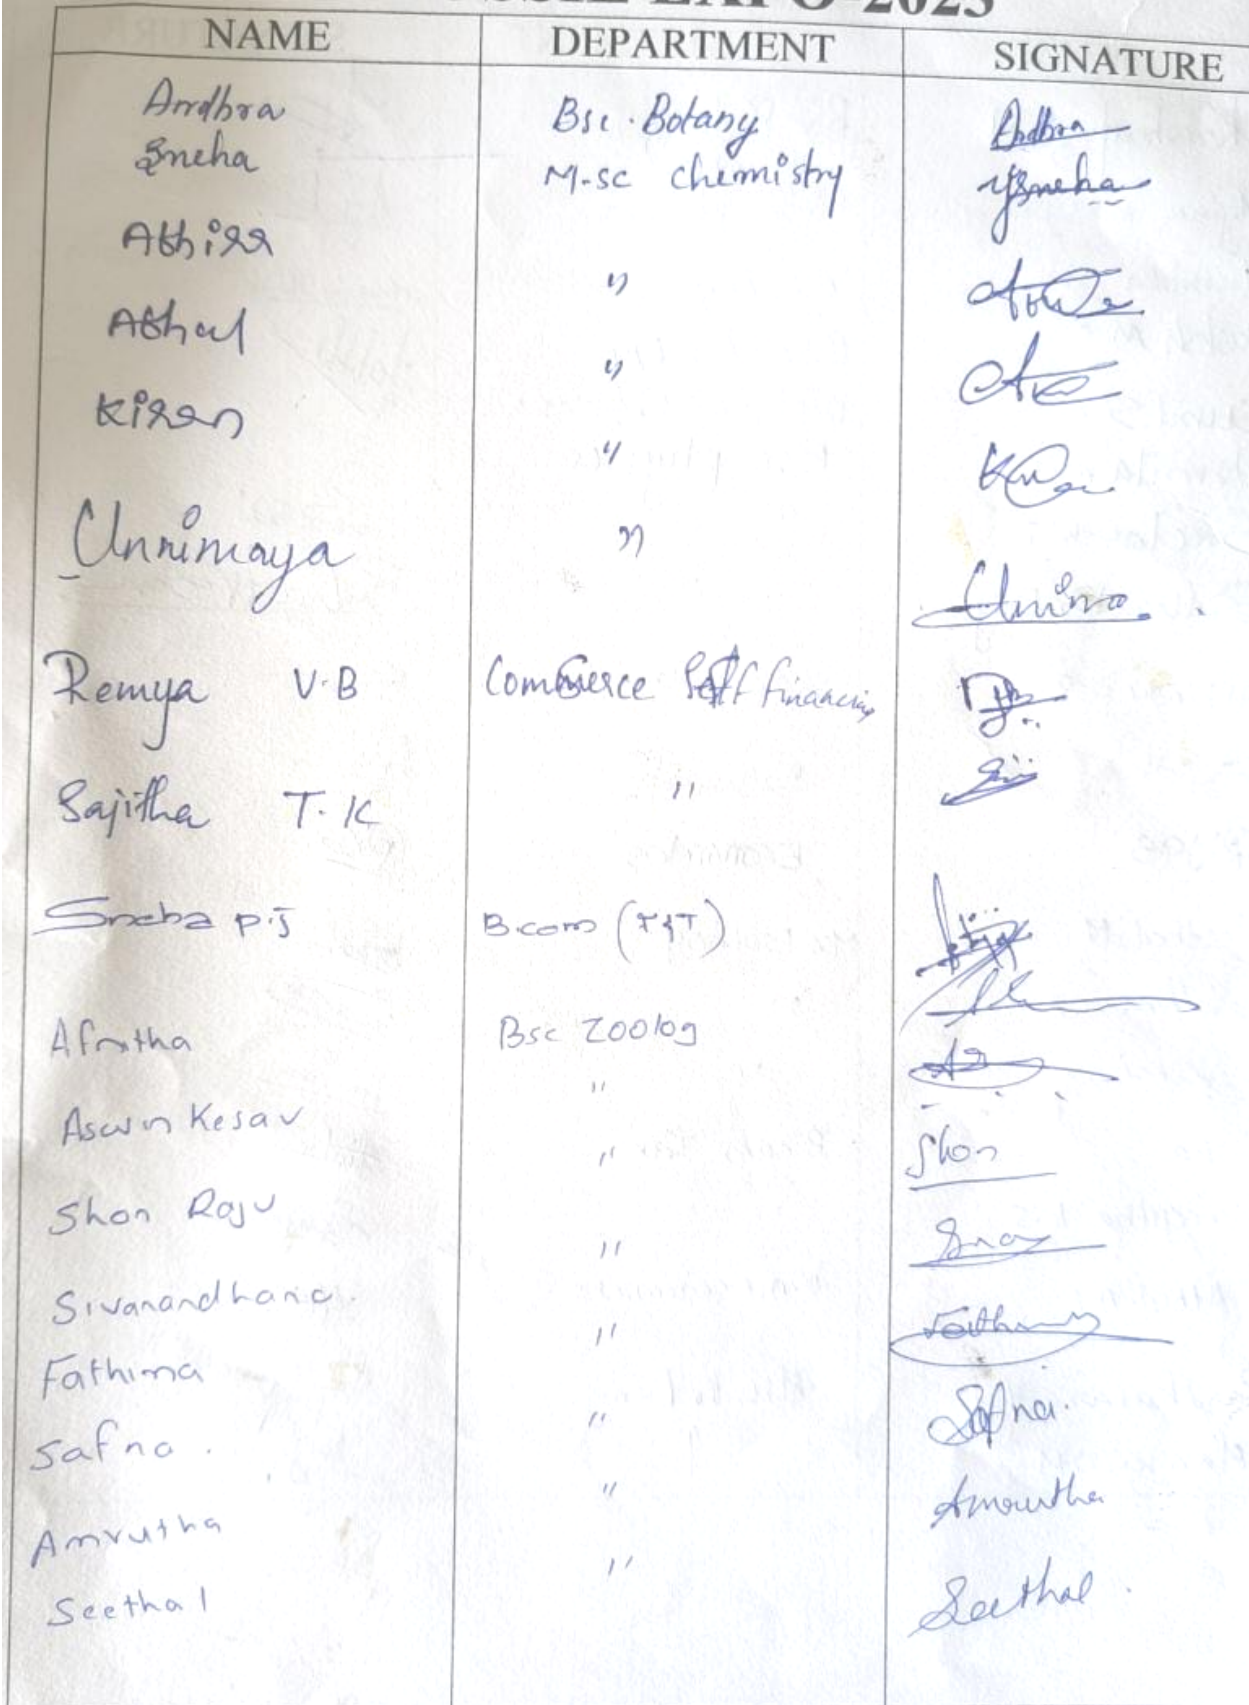 EXPO-2023
NAME DEPARTMENT SIGNATURE
Andhra Bsc. Botany Andhra
Sneha M.sc chemistry YSneha
Athira "
Athul "
Kiran "
Unnimaya "
Remya V.B Commerce Self financing
Sajitha T.K "
Sneha P.J B.com (T&T)
Afritha Bsc Zoolog
Aswin Kesav "
Shon Raju " Shon
Sivanandhana "
Fathima " Fathima
Safna . " Safna.
Amrutha " Amrutha
Seethal " Seethal .